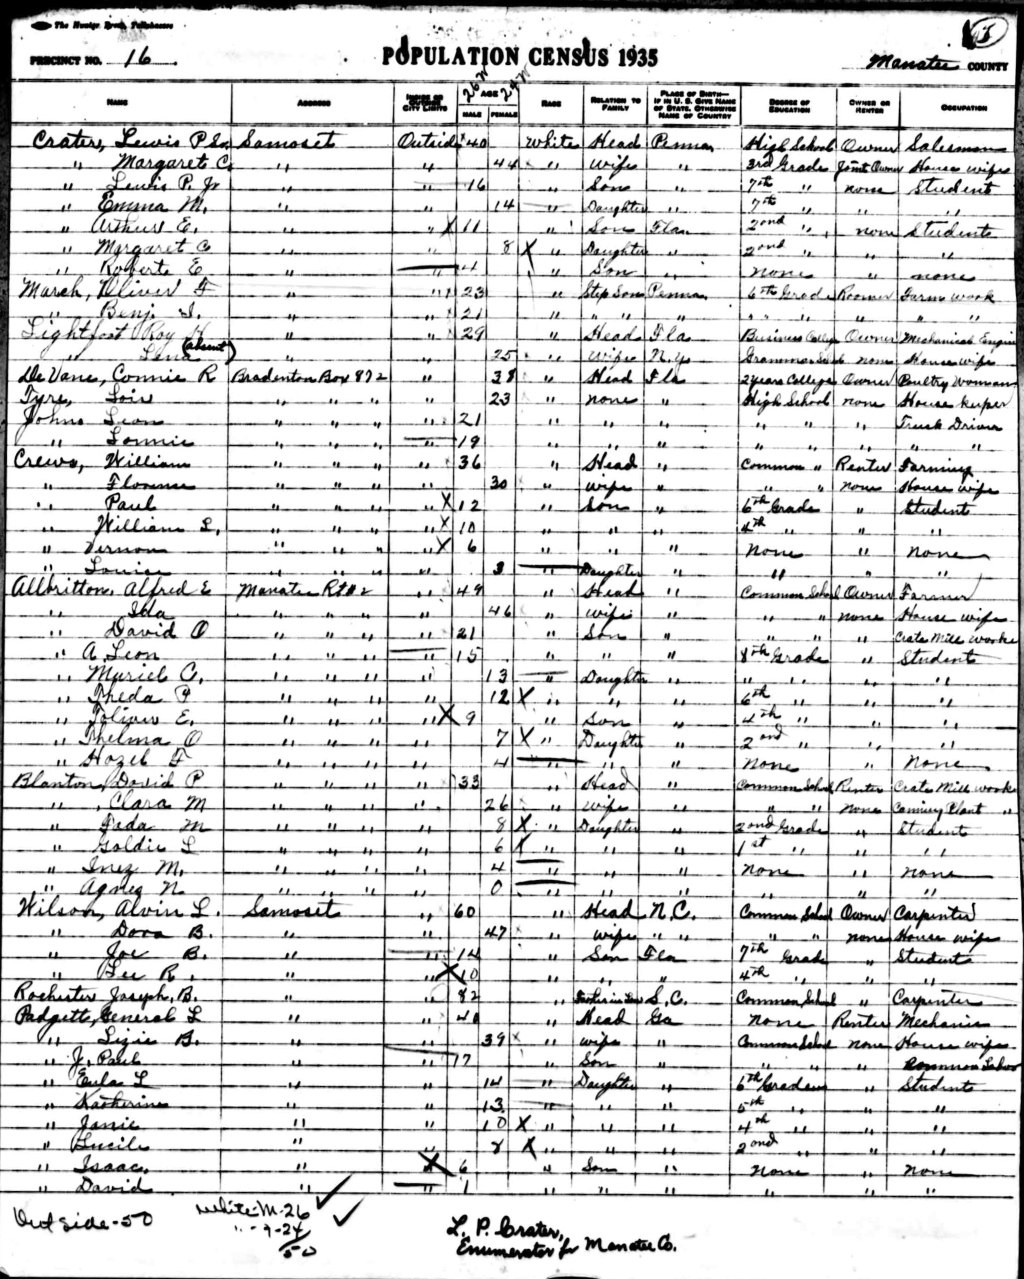 The Hunter Press, Tallahassee
PRECINCT NO. 16 POPULATION CENSUS 1935 Manatee COUNTY
26W 24W
NAME ADDRESS INSIDE OR OUTSIDE CITY LIMITS AGE MALE FEMALE RACE RELATION TO FAMILY PLACE OF BIRTH—IF IN U. S. GIVE NAME OF STATE, OTHERWISE NAME OF COUNTRY DEGREE OF EDUCATION OWNER OR RENTER OCCUPATION
Crater, Lewis P Sr. Samoset Outside 40 White Head Penna High School Owner Salesman
" Margaret C. " " 44 " Wife " 3rd Grade Joint Owner House wife
" Lewis P. Jr " " 16 " Son " 7th " none Student
" Emma M. " " 14 " Daughter " 7th " " "
" Arthur E. " " X 11 " Son Fla. 2nd " none Students
" Margaret C " " 8 X " Daughter " 2nd " " "
" Roberts E " " 4 " Son " none " none
March, Oliver F " " 23 " Step Son Penna. 6th Grade Roomer Farm work
" Benj. I. " " 21 " " " " " " "
Lightfoot Roy H " " 29 " Head Fla Business College Owner Mechanical Engin
" Lena (absent) " " 25 " Wife N.Y. Grammar School none House wife
DeVane, Connie R Bradenton Box 872 " 38 " Head Fla 2 years College Owner Poultry Woman
Tyre, Lois " " " " 23 " none " High School none House keeper
Johns Leon " " " " 21 " " " " " " Truck Driver
" Lonnie " " " " 19 " " " " " " "
Crews, William " " " " 36 " Head " Common " Renter Farming
" Florence " " " " 30 " wife " " " none House wife
" Paul " " " " X 12 " Son " 6th Grade " Student
" William L. " " " " X 10 " " " 4th " " "
" Vernon " " " " X 6 " " " None " none
" Louise " " " " 3 " Daughter " " " "
Allbritton, Alfred E Manatee Rt#2 " 49 " Head " Common School Owner Farmer
" Ida " " " " 46 " wife " " " none House wife
" David O " " " " 21 " Son " " " Crate Mill worke
" A Leon " " " " 15 " " " 8th Grade " Student
" Muriel C. " " " " 13 " Daughter " " " " "
" Theda P " " " " 12 X " " " 6th " " "
" Toliver E. " " " " X 9 " Son " 4th " " "
" Thelma O " " " " 7 X " Daughter " 2nd " " "
" Hazel F " " " " 4 " " " None " None
Blanton, David P " " " " 33 " Head " Common School Renter Crate Mill worke
" Clara M " " " " 26 " wife " " " none Canning Plant "
" M " " " " 8 X " Daughter " 2nd Grade " Student
" Goldie L " " " " 6 X " " " 1st " " "
" Inez M. " " " " 4 " " " none " none
" Agnes N. " " " " 0 " " " " " "
Wilson, Alvin L. Samoset " 60 " Head N.C. Common School Owner Carpenter
" Dora B. " " 47 " wife " " " " none House wife
" Joe B. " " 14 " Son Fla 7th Grade " Student
" Lee R. " " X 10 " " " 4th " " "
Rochester Joseph, B. " " 82 " S.C. Common School " Carpenter
Padgette, General L " " 40 " Head Ga none Renter Mechanic
" Lizie B. " " 39 " wife " Common School none House wife
" J. Paul " " 17 " Son " " " Common School
" Eula L " " 14 " Daughter " 6th Grade " Students
" Katherine " " 13 " " " 5th " " "
" Janie " " 10 X " " " 4th " " "
" Lucile " " 8 X " " " 2nd " "
" Isaac. " X 6 " Son " none " none
" David " " 1 " " " " " "
Outside-50 White-M-26
" - F-24
50
L. P. Crater,
Enumerator for Manatee Co.